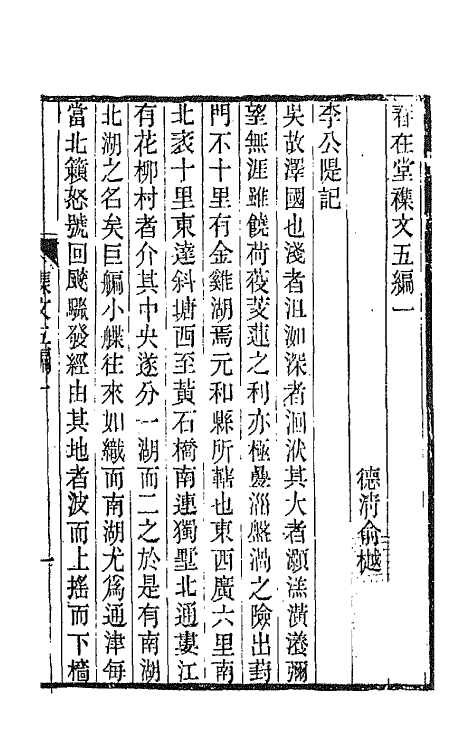 春在堂襍文五編一
德清俞樾
李公隄記
吳故澤國也淺者沮洳深者洄洑其大者灝溔潢瀁彌
望無涯雖饒荷芰菱蓮之利亦極㬥淄盤渦之險出葑
門不十里有金雞湖焉元和縣所轄也東西廣六里南
北袤十里東達斜塘西至黃石橋南連獨墅北通婁江
有花柳村者介其中央遂分一湖而二之於是有南湖
北湖之名矣巨艑小艓往來如織而南湖尤爲通津每
當北籟怒號回颷飈發經由其地者波而上搖而下檣
襍文五編一
一